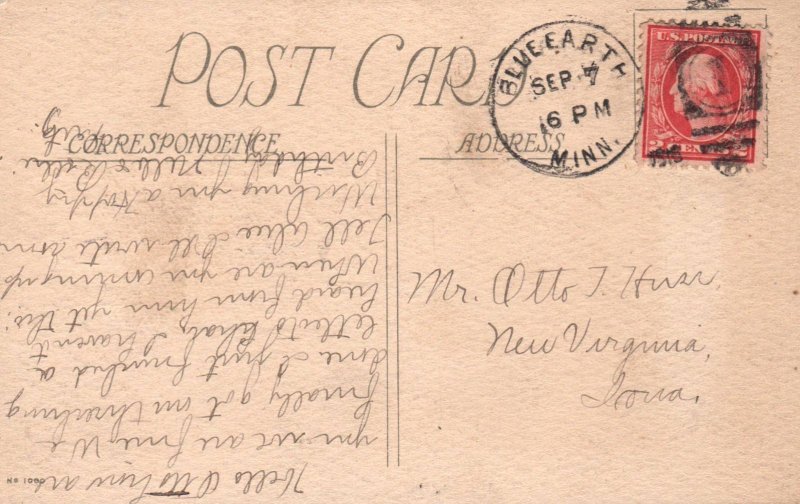 POST CARD
BLUE EARTH
SEP 7
6 PM
MINN.
U.S. POSTAGE
CORRESPONDENCE
ADDRESS
Hello Otto how are
you we are fine. We
finally got our threshing
done I just finished a
letter to I haven't
heard from him yet this.
When are you coming up
Tell I'll write soon
Wishing you a Happy
Birthday
Mr. Otto T.
New Virginia,
Iowa.
No 1000